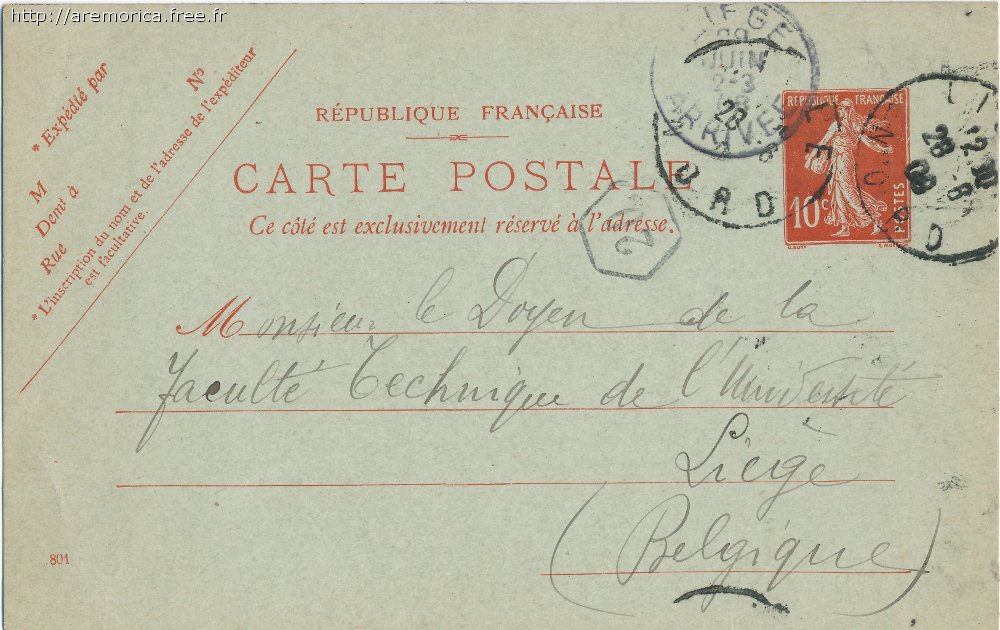 http://aremorica.free.fr
* Expédié par
M
Demt à
Rue
Nº
* L'inscription du nom et de l'adresse de l'expéditeur
est facultative.
RÉPUBLIQUE FRANÇAISE
CARTE POSTALE
Ce côté est exclusivement réservé à l'adresse.
LIEGE
29
JUIN
2-3
ARRIVEE
REPUBLIQUE FRANÇAISE
10 c
POSTES
LILLE
NORD
28
LI
12
28 -6
08
NORD
2
Monsieur le Doyen de la
Faculté Technique de l'Université
Liège
(Belgique)
801